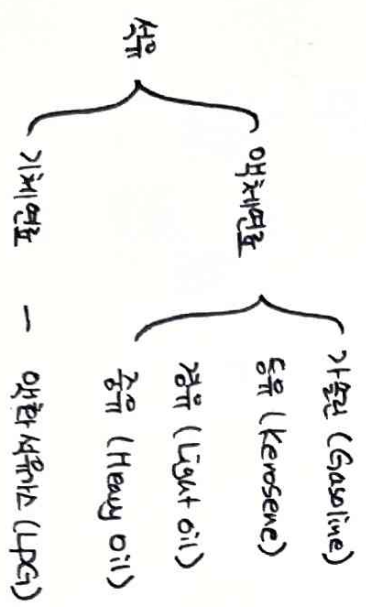 석유
액체연료
가솔린 (Gasoline)
등유 (Kerosene)
경유 (Light oil)
중유 (Heavy oil)
기체연료 - 액화석유가스 (LPG)